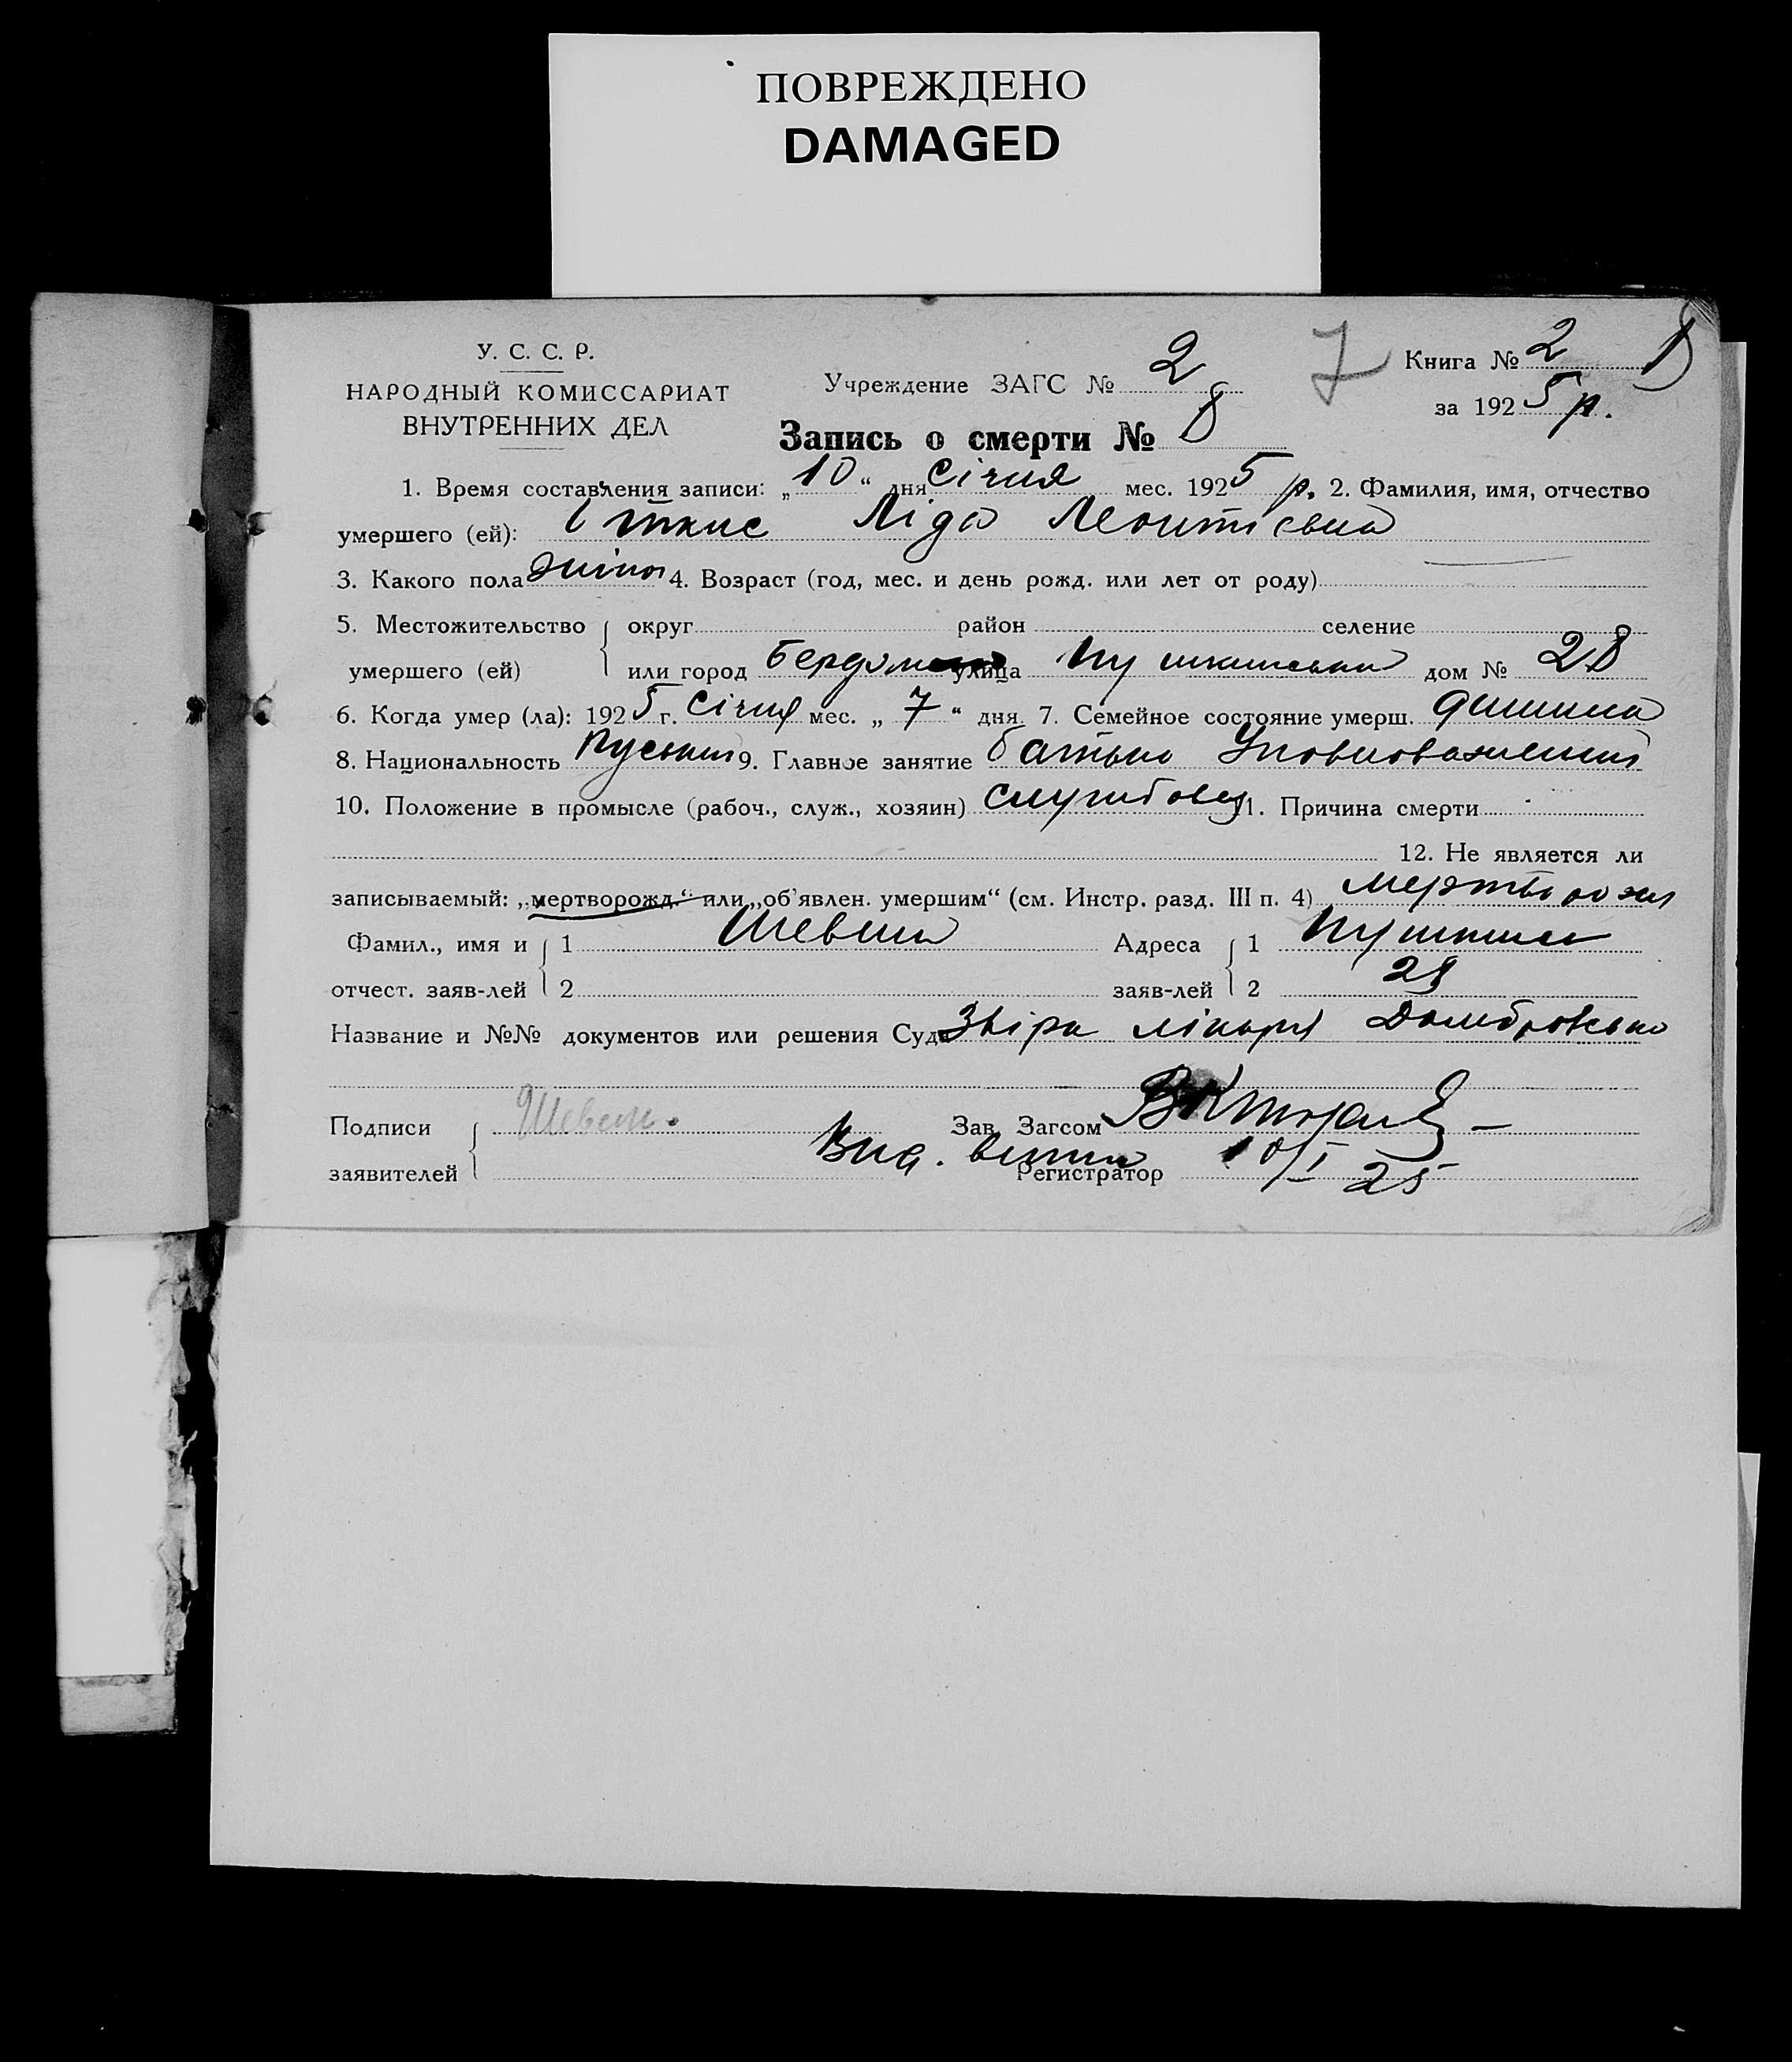 ПОВРЕЖДЕНО
DAMAGED
У. С. С. Р.
НАРОДНЫЙ КОМИССАРИАТ
ВНУТРЕННИХ ДЕЛ
Учреждение ЗАГС № 2
7
Книга № 2
за 1925 р.
Запись о смерти № 8
1. Время составления записи: „10“ дня Січня мес. 1925 р. 2. Фамилия, имя, отчество
умершего (ей): Ліда Леонтієвна
3. Какого пола жіноч 4. Возраст (год, мес. и день рожд. или лет от роду)
5. Местожительство округ район селение
умершего (ей) или город улица Пушкинська дом № 28
6. Когда умер (ла): 1925 г. Січня мес. „7“ дня. 7. Семейное состояние умерш. дитина
8. Национальность 9. Главное занятие батько Уповноважений
10. Положение в промысле (рабоч., служ., хозяин) службовец 11. Причина смерти
12. Не является ли
записываемый: „мертворожд.“ или „об'явлен. умершим“ (см. Инстр. разд. III п. 4)
Фамил., имя и 1 Адреса 1
отчест. заяв-лей 2 заяв-лей 2 28
Название и №№ документов или решения Суда лікаря Домбровсько
Подписи Зав. Загсом
заявителей Регистратор 10/I 25